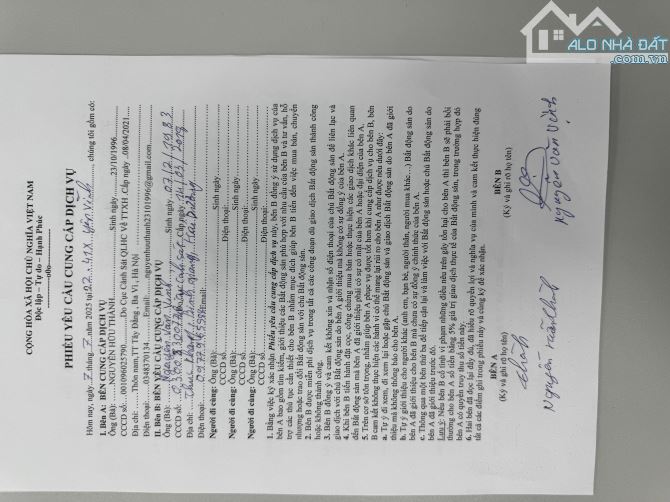 ALO NHÀ ĐẤT
.com.vn
CỘNG HÒA XÃ HỘI CHỦ NGHĨA VIỆT NAM
Độc lập – Tự do – Hạnh Phúc
-----o0o-----
PHIẾU YÊU CẦU CUNG CẤP DỊCH VỤ
Hôm nay, ngày tháng 7 năm 2025 tại Yên Vinh chúng tôi gồm có:
I. Bên A: BÊN CUNG CẤP DỊCH VỤ
Ông (Bà): NGUYỄN HỮU THÀNH Sinh ngày 23/10/1996
CCCD số: 001096025790 Do Cục Cảnh Sát QLHC Về TTXH Cấp ngày 08/04/2021
Địa chỉ: Thôn TT Tây Đằng, Ba Vì, Hà Nội
Điện thoại: 0348370134 Email: nguyenhuuthanh23101996@gmail.com
II. Bên B: BÊN YÊU CẦU CUNG CẤP DỊCH VỤ
Ông (Bà): Nguyễn Văn Vinh Sinh ngày
CCCD số: Cấp ngày
Địa chỉ: Hải Dương
Điện thoại: Email:
Người đi cùng: Ông (Bà): Sinh ngày
CCCD số: Điện thoại:
Người đi cùng: Ông (Bà): Sinh ngày
CCCD số: Điện thoại:
Người đi cùng: Ông (Bà): Sinh ngày
CCCD số: Điện thoại:
1. Bằng việc ký xác nhận Phiếu yêu cầu cung cấp dịch vụ này, bên B đồng ý sử dụng dịch vụ của
bên A, bao gồm tìm kiếm, giới thiệu các Bất động sản phù hợp với nhu cầu của bên B và tư vấn, hỗ
trợ các thủ tục cần thiết cho bên B nhằm mục đích giúp bên B tiến đến việc mua bán, chuyển
nhượng hoặc trao đổi Bất động sản với chủ Bất động sản.
2. Bên B được miễn phí dịch vụ trong tất cả các công đoạn dù giao dịch Bất động sản thành công
hoặc không thành công.
3. Bên B đồng ý và cam kết không xin và nhận số điện thoại của chủ Bất động sản để liên lạc và
giao dịch với chủ Bất động sản do bên A giới thiệu mà không có sự đồng ý của bên A.
4. Khi bên B tiến hành đặt cọc, công chứng mua bán hoặc thực hiện các giao dịch khác liên quan
đến Bất động sản mà bên A đã giới thiệu phải có sự có mặt của bên A hoặc đại diện của bên A.
5. Trên cơ sở tôn trọng, nhằm giúp bên A phục vụ được tốt hơn khi cung cấp dịch vụ cho bên B, bên
B cam kết không thực hiện các hành vi có thể mang lại rủi ro cho bên A như được nêu dưới đây:
a. Tự ý đi xem, đi xem lại hoặc gặp chủ Bất động sản và giao dịch Bất động sản do bên A đã giới
thiệu mà không thông báo cho bên A.
b. Tự ý giới thiệu cho người khác (anh em, bạn bè, người thân, người mua khác...) Bất động sản do
bên A đã giới thiệu cho bên B mà chưa có sự đồng ý chính thức của bên A.
c. Thông qua một bên thứ ba để tiếp cận lại và làm việc với Bất động sản hoặc chủ Bất động sản do
bên A đã giới thiệu trước đó.
Lưu ý: Nếu bên B cố tình vi phạm những điều nêu trên gây tổn hại cho bên A thì bên B sẽ phải bồi
thường cho bên A số tiền bằng 5% giá trị giao dịch thực tế của Bất động sản, trong trường hợp đó
bên A có quyền truy thu số tiền nói trên.
6. Hai bên đã đọc lại đầy đủ, đã hiểu rõ quyền lợi và nghĩa vụ của mình và cam kết thực hiện đúng
tất cả các điểm ghi trong phiếu này và cùng ký để xác nhận.
BÊN A
(Ký và ghi rõ họ tên)
Thành
Nguyễn Hữu Thành
BÊN B
(Ký và ghi rõ họ tên)
Nguyễn Văn Vinh